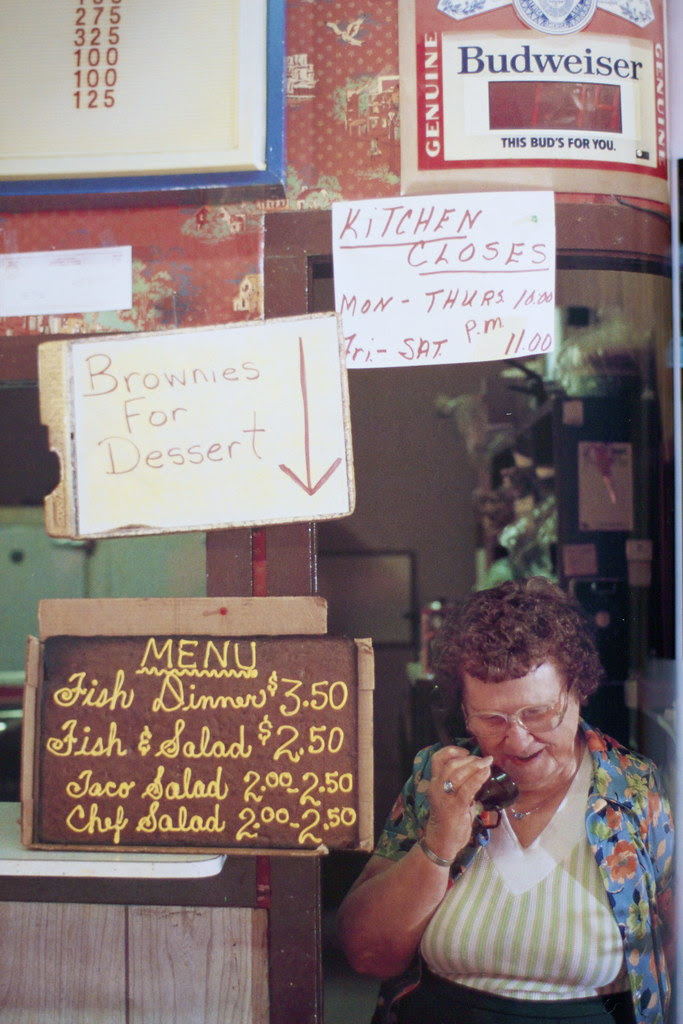 275
325
100
100
125
GENUINE
Budweiser
GENUINE
THIS BUD'S FOR YOU.
KiTCHEN
CLOSES
MON - THURS. 10:00
P.M.
Fri. - SAT. 11.00
Brownies
For
Dessert
MENU
Fish Dinner $3.50
Fish & Salad $2.50
Taco Salad 2.00-2.50
Chef Salad 2.00-2.50